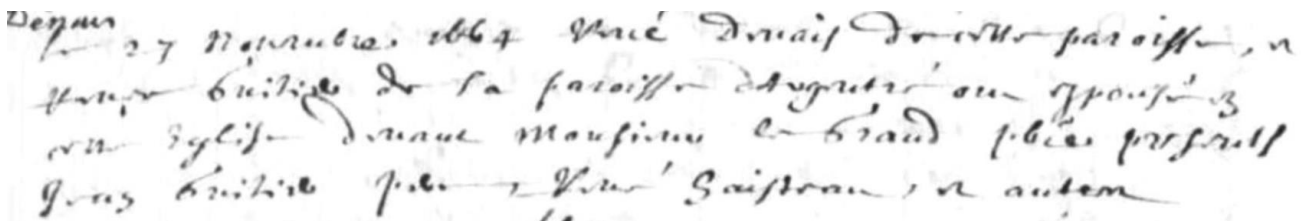 Denais
Le 27 Novembre 1664 René Denais de cette paroisse, et
Renée Guitiee de la paroisse d'Argentré ont espousé en
cette Eglise devant Monsieur le Grand pbre presents
Jean Guitiee René Gaisteau, et autres